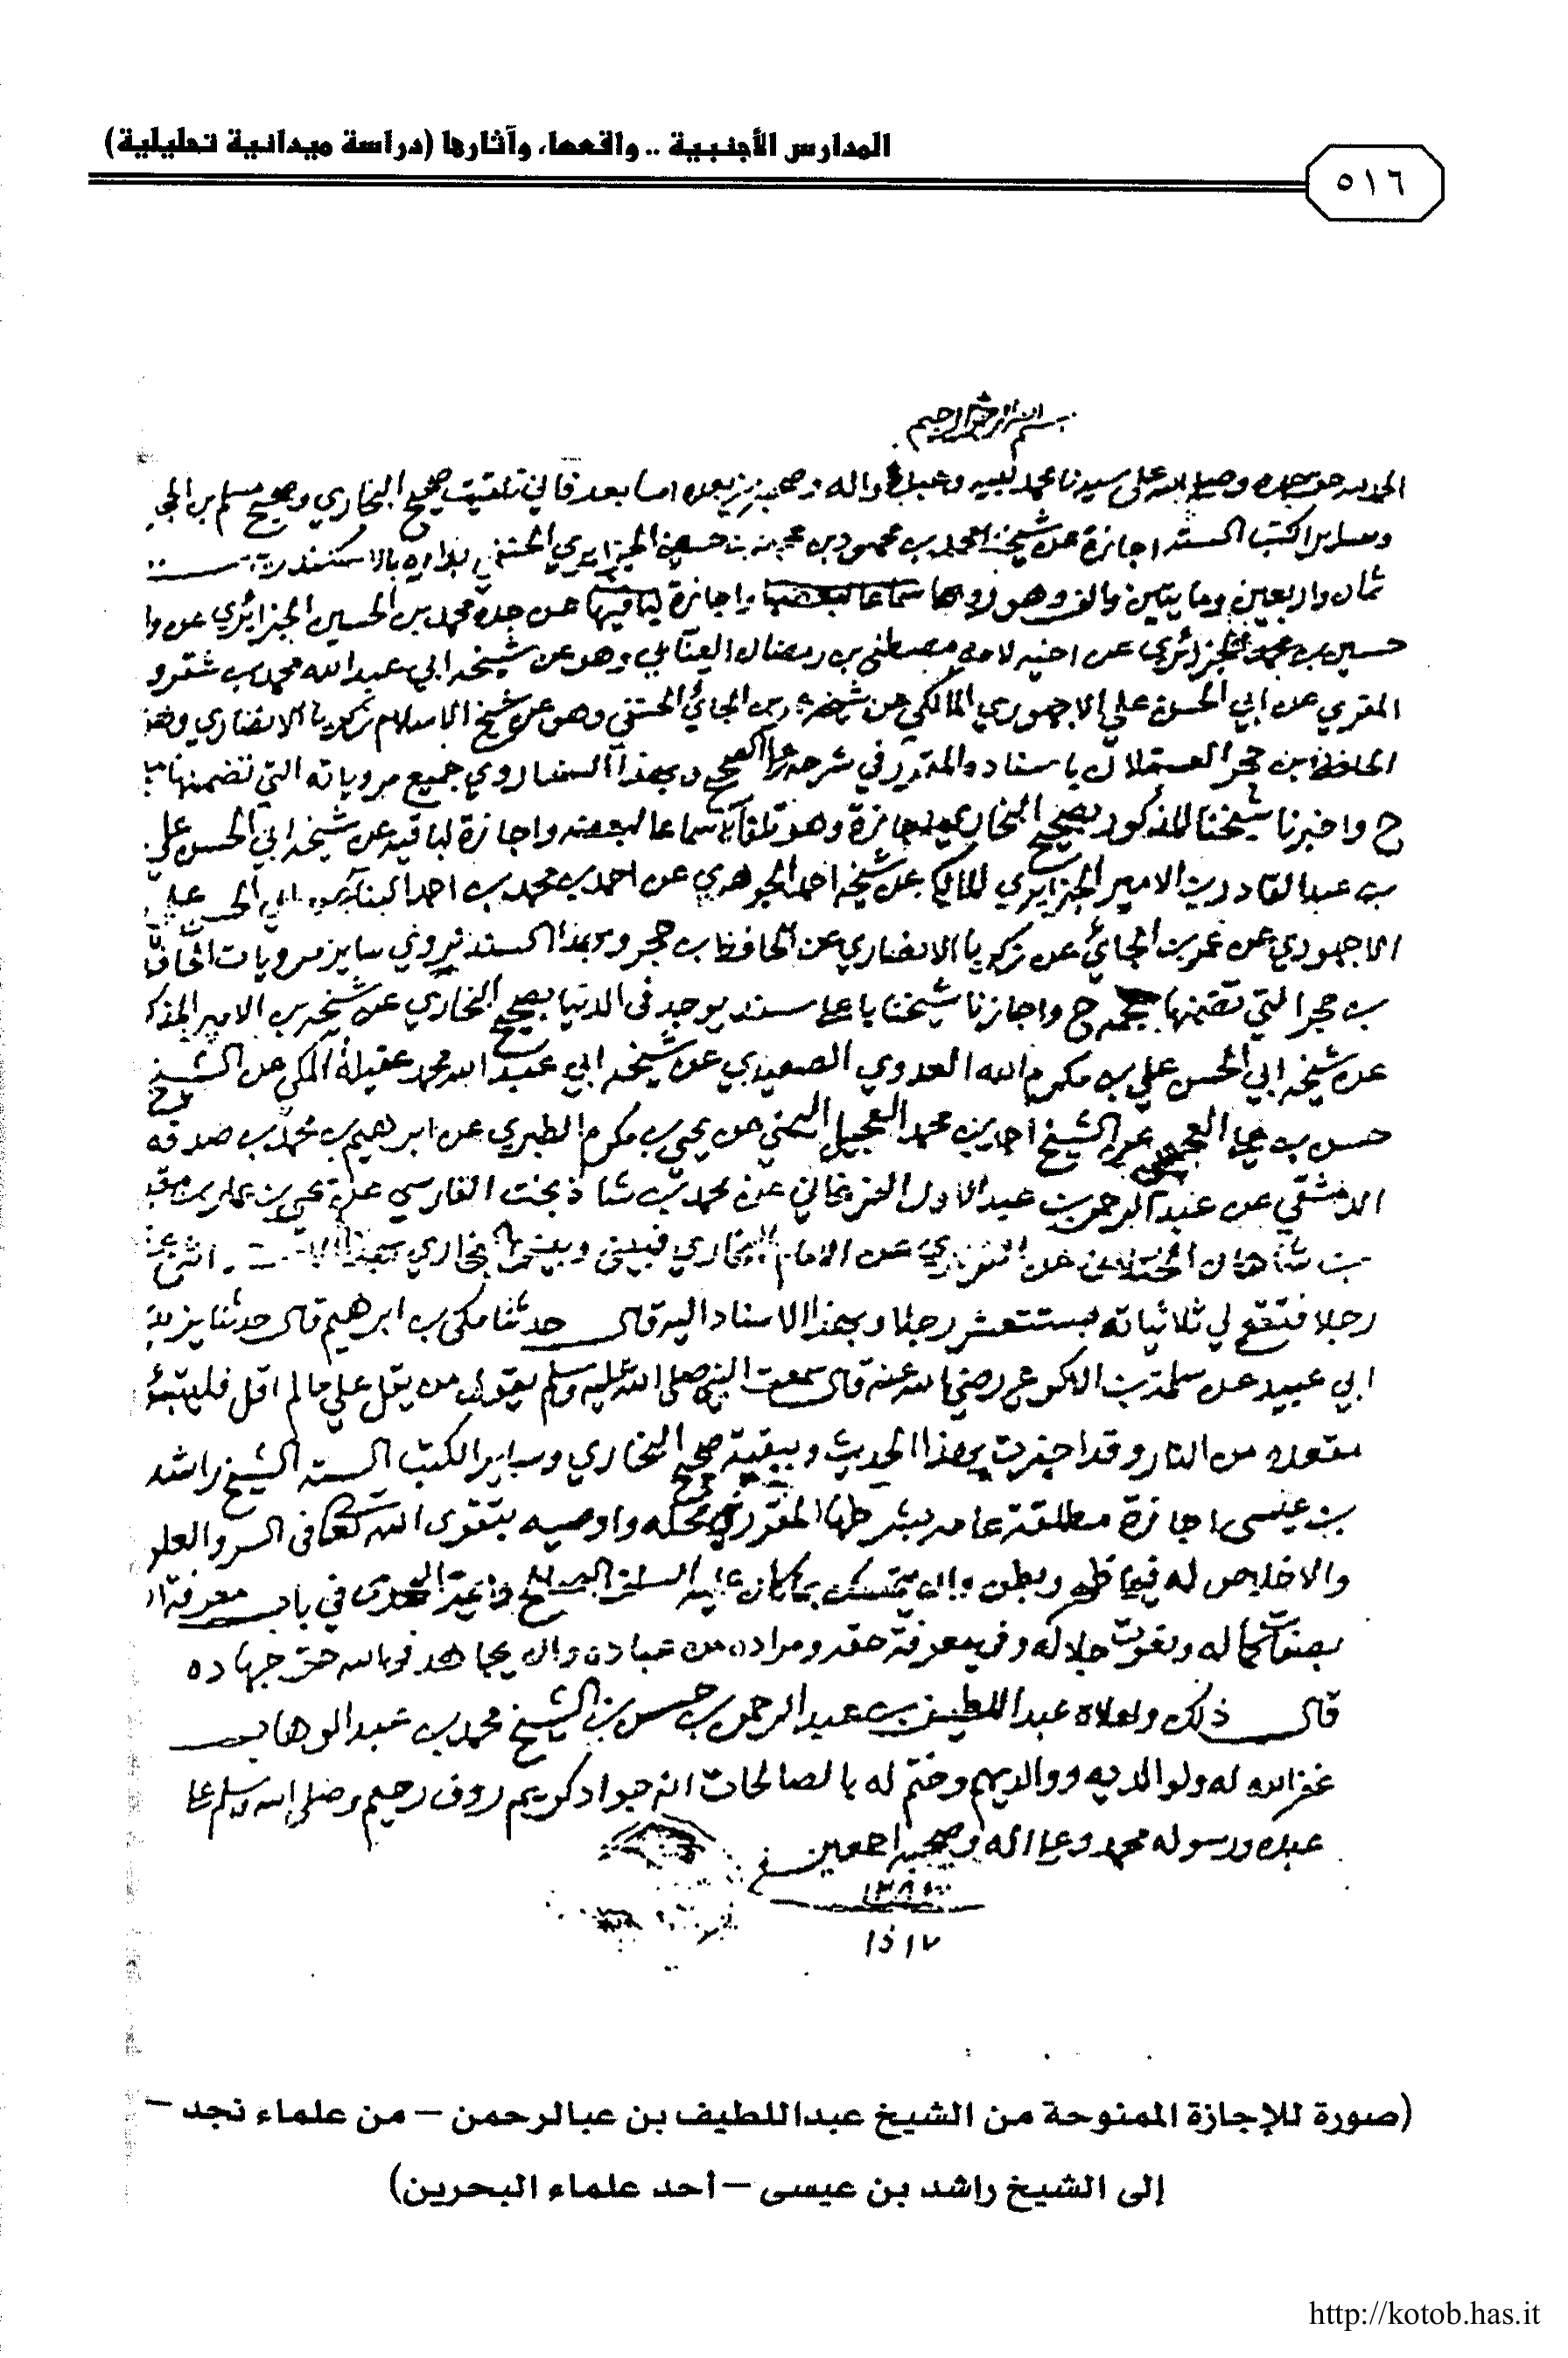 المدارس الأجنبية .. واقعها، وآثارها (دراسة ميدانية تحليلية)
٥١٦
بسم الله الرحمن الرحيم
الحمد لله حق حمده وصلى الله على سيدنا محمد نبيه وعبده واله وصحبه بعده اما بعد فاني تلقيت صحيح البخاري وصحيح مسلم بن الحج
وساير الكتب الستة اجازة عن شيخنا محمد بن محمود بن محمد بن حسين الجزايري الحنفي بداره بالاسكندرية سنة
ثمان واربعين ومايتين والف وهو رواها سماعا لبعضها واجازة لباقيها عن جده محمد بن الحسين الجزائري عن وا
حسين بن محمد الجزائري عن اخيه لامه مصطفى بن رمضان العنابي وهو عن شيخه ابي عبد الله محمد بن شقرو
المقري عن ابي الحسن علي الاجهوري المالكي عن شيخه عمر بن الجائي الحنفي وهو عن شيخ الاسلام زكريا الانصاري وهو
الحافظ ابن حجر العسقلاني باسناده المقرر في شرحه على الصحيح وبهذا السند اروي جميع مروياته التي تضمنها
ح واخبرنا شيخنا المذكور بصحيح البخاري اجازة وهو تلقاه سماعا لبعضه واجازة لباقيه عن شيخه ابي الحسن علي
بن عبد القادر بن الامير الجزايري المالكي عن شيخه احمد الجوهري عن احمد بن محمد بن احمد البنا عن ابي الحسن علي
الاجهوري عن عمر بن الجائي عن زكريا الانصاري عن الحافظ بن حجر وبهذا السند نروي ساير مرويات الحافظ
بن حجر التي تضمنها معجمه ح واجازنا شيخنا باعلى سند يوجد في الدنيا بصحيح البخاري عن شيخه بن الامير المذكو
عن شيخه ابي الحسن علي بن مكرم الله العدوي الصعيدي عن شيخه ابي عبد الله محمد عقيلة المكي عن الشيخ
حسن بن علي العجيمي عن الشيخ احمد بن محمد العجيل اليمني عن يحيى بن مكرم الطبري عن ابرهيم بن محمد بن صدقه
الدمشقي عن عبد الرحمن بن عبد الاول الفرغاني عن محمد بن شاذ بخت الفارسي عن يحيى بن عمار بن مقبل
بن شاهان الختلاني عن الفربري عن الامام البخاري فبيني وبين البخاري بهذا اثنى عشر
رجلا فتقع لي ثلاثياته بستة عشر رجلا وبهذا الاسناد اليه قال حدثنا مكي بن ابرهيم قال حدثنا يزيد
ابي عبيد عن سلمة بن الاكوع رضي الله عنه قال سمعت النبي صلى الله عليه وسلم يقول من يقل علي ما لم اقل فليتبوأ
مقعده من النار وقد اجزت بهذا الحديث وببقية صحيح البخاري وساير الكتب الستة الشيخ راشد
بن عيسى اجازة مطلقة عامه بشرطها المقرر في محله واوصيه بتقوى الله تعالى في السر والعلن
والاخلاص له فيما ظهر وبطن وان يتمسك بما كان عليه السلف الصالح وائمة الهدى في باب معرفة ا
بصفات كماله ونعوت جلاله وفي معرفة حقه ومراده من عباده وان يجاهد في الله حق جهاده
قال ذلك واملاه عبد اللطيف بن عبد الرحمن بن حسن بن الشيخ محمد بن عبد الوهاب
غفر الله له ولوالديه ووالديهم وختم له بالصالحات انه جواد كريم روف رحيم وصلى الله وسلم على
عبده ورسوله محمد وعلى اله وصحبه اجمعين
(صورة للإجازة الممنوحة من الشيخ عبداللطيف بن عبالرحمن – من علماء نجد –
إلى الشيخ راشد بن عيسى – أحد علماء البحرين)
http://kotob.has.it